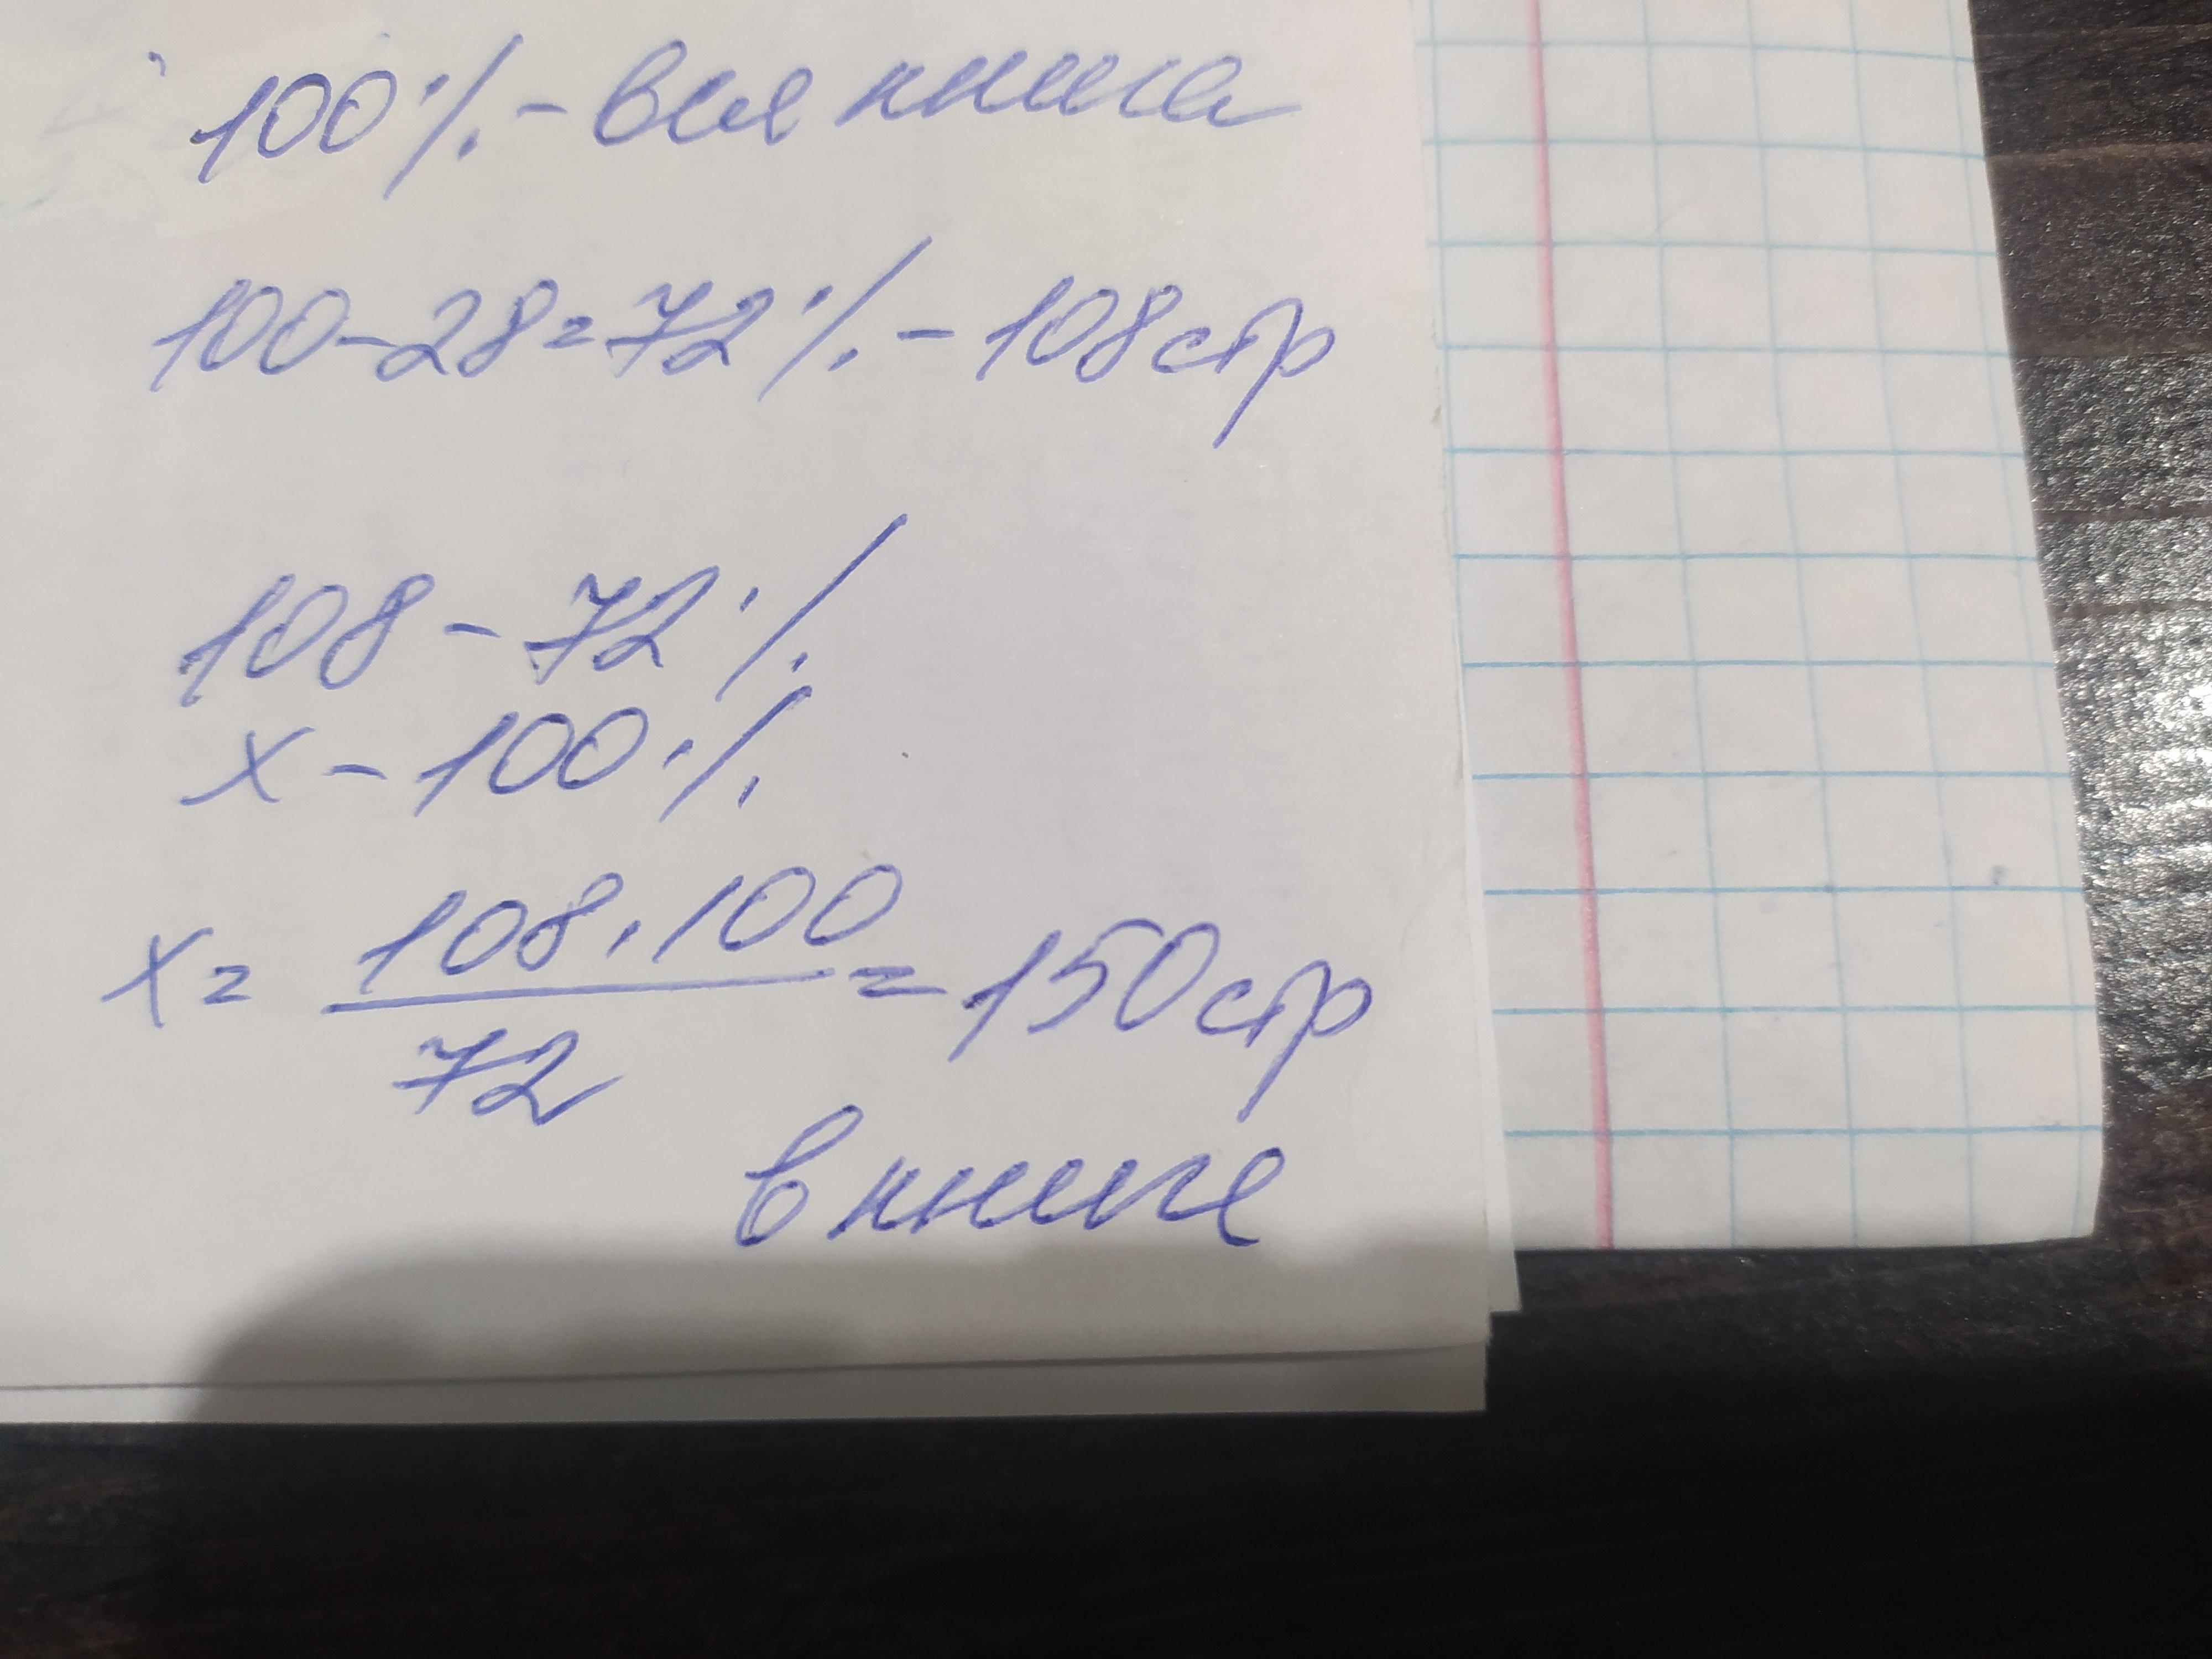 100% - вся книга
100-28=72% - 108стр
108 - 72%
x - 100%
x = 108·100 / 72 = 150стр
в книге